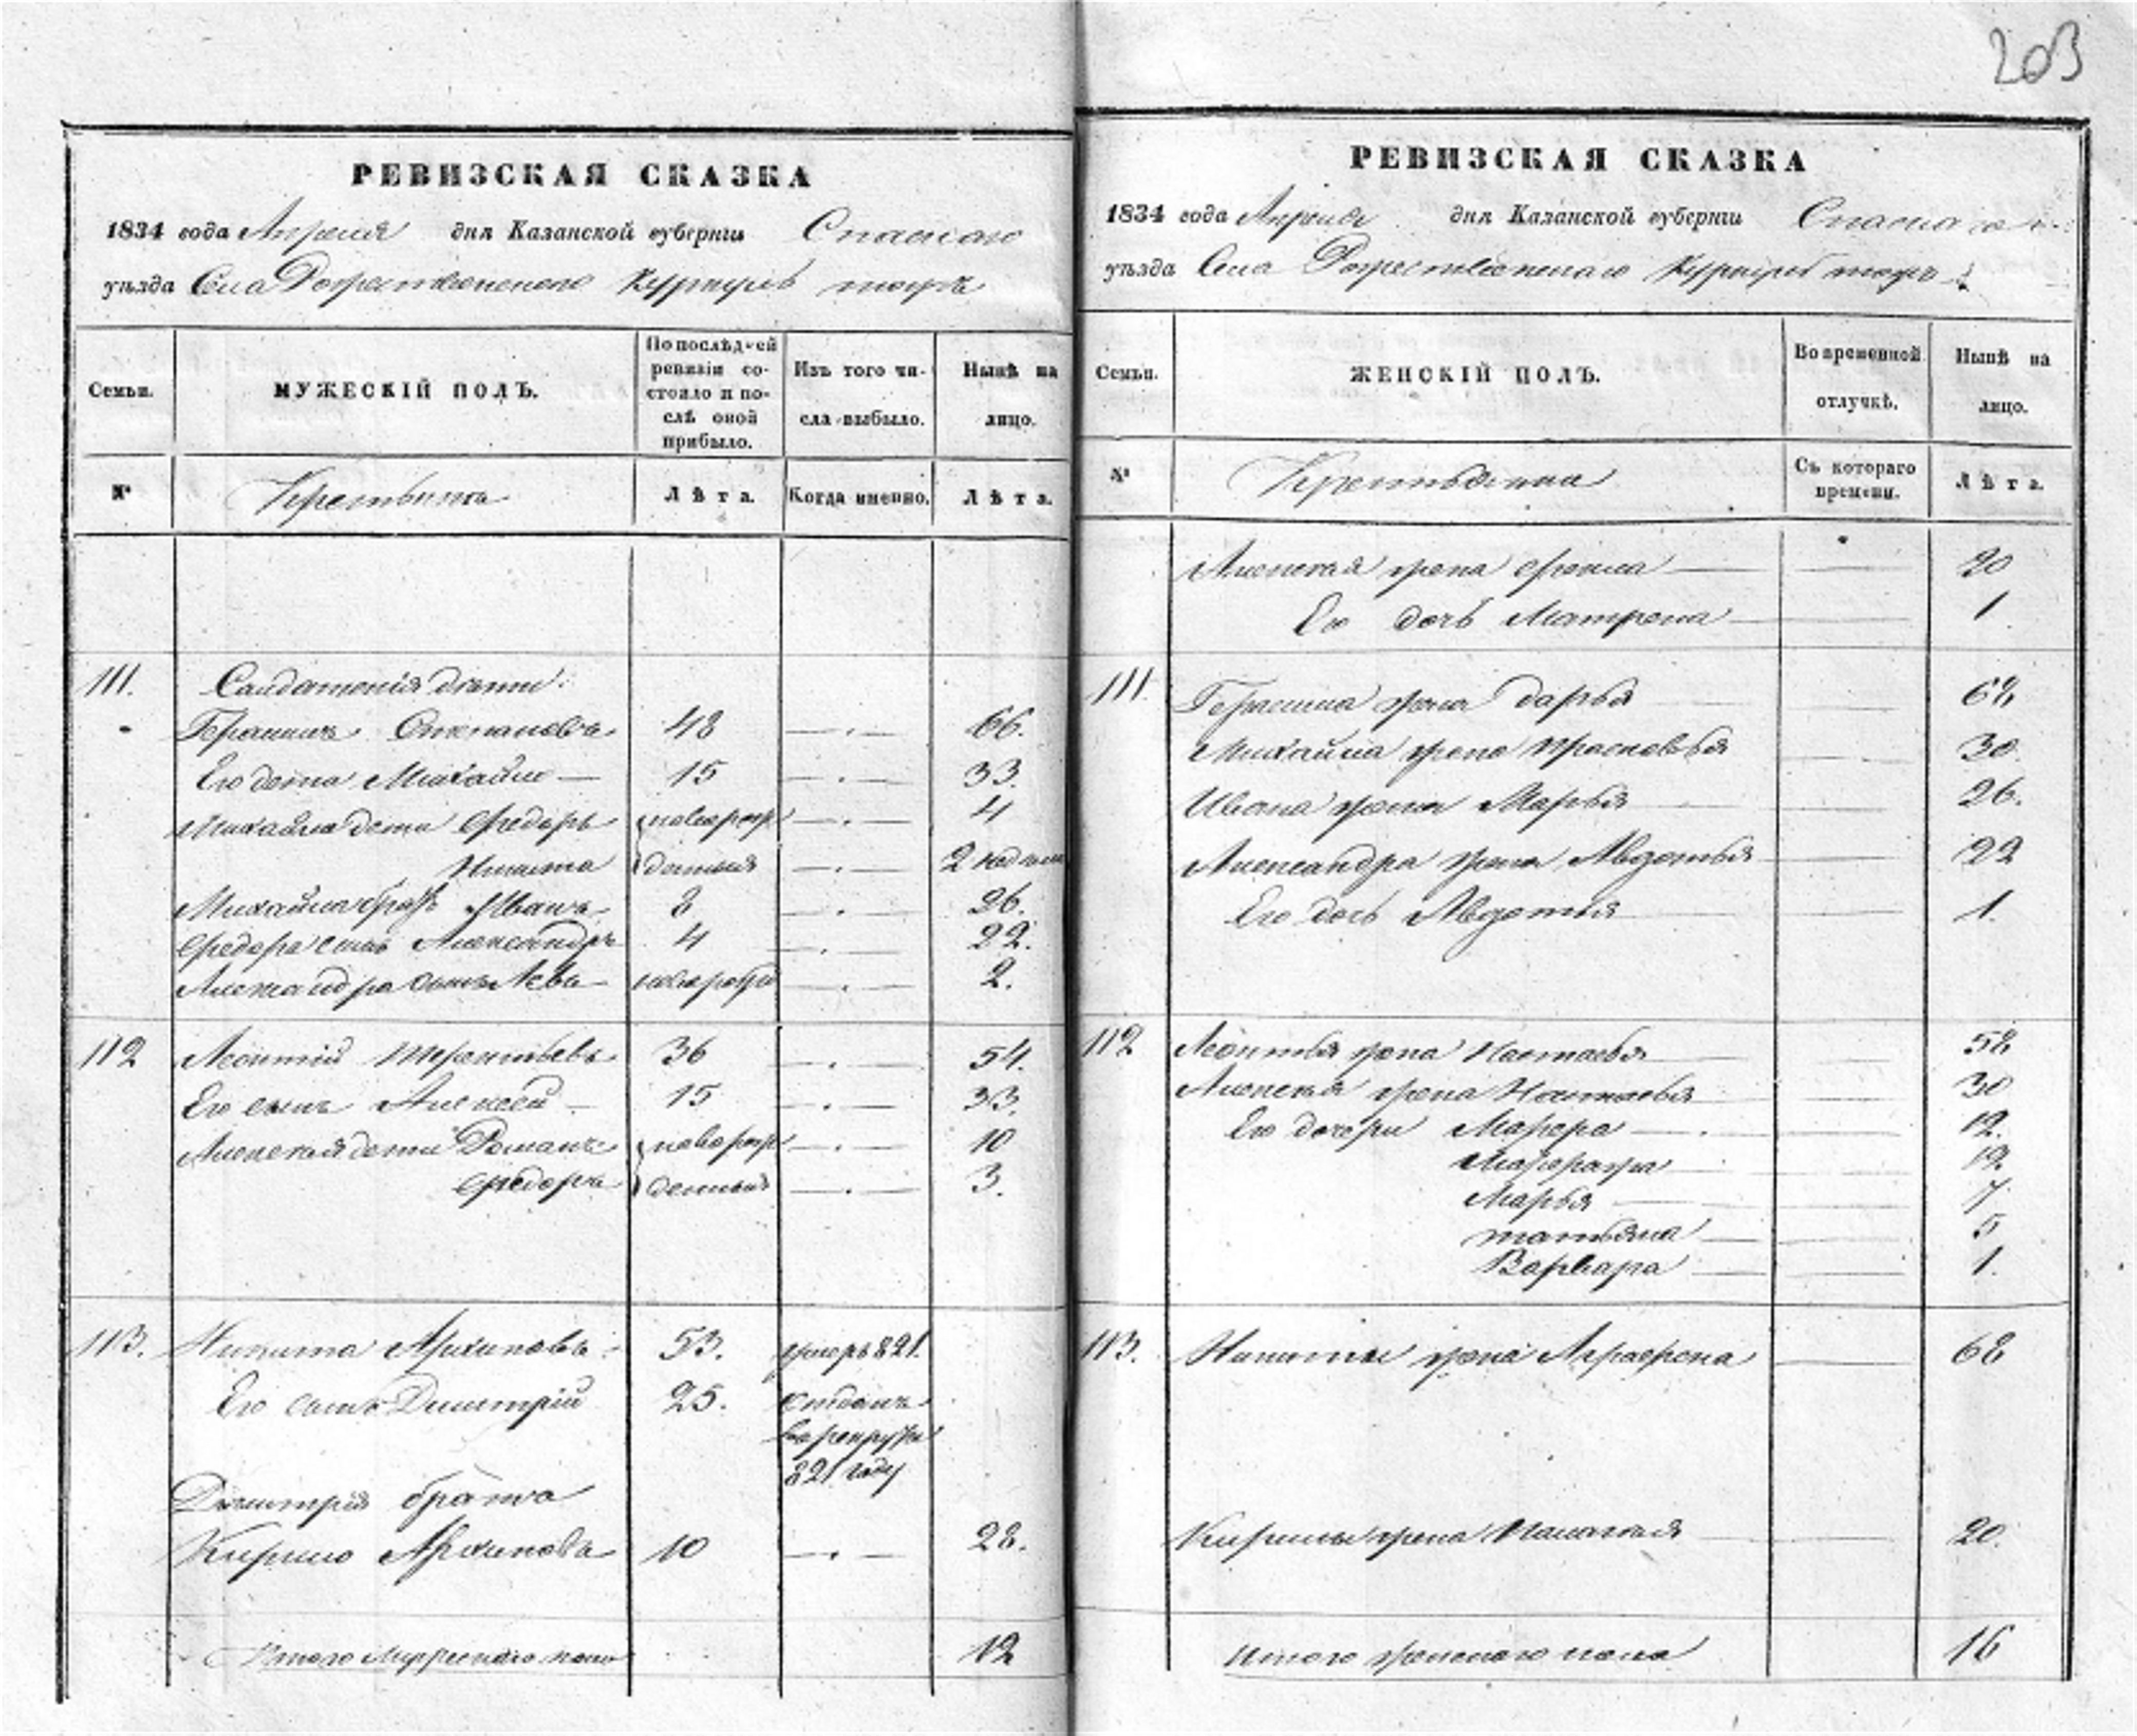 203
РЕВИЗСКАЯ СКАЗКА
1834 года Апреля дня Казанской губерніи Спаскаго
уѣзда Села Рожественскаго Куркуль тожъ
Семьи.
МУЖЕСКІЙ ПОЛЪ.
По послѣдней ревизіи состояло и послѣ оной прибыло.
Изъ того числа выбыло.
Нынѣ на лицо.
№
Крестьяна
Лѣта.
Когда именно.
Лѣта.
111. Салдатскія дѣти:
Герасимъ Степановъ 48 66.
Его дети Михайло 15 33.
Михайла дети Федоръ новорож 4
Никита денныя 2 недели
Михайла братъ Иванъ 8 26.
Федора сынъ Александръ 4 22.
Александра сынъ Левъ новорож 2.
112 Леонтій Терентьевъ 36 54.
Его сынъ Алексей 15 33.
Алексея дети Романъ новорож 10
Федоръ денныя 3.
113. Никита Архиповъ 53. умеръ 821.
Его сынъ Димитрій 25. отданъ
в рекруты
821 году
Димитрія братъ
Кирило Архиповъ 10 28.
Итого Мужескаго пола 12
РЕВИЗСКАЯ СКАЗКА
1834 года Апреля дня Казанской губерніи Спаскаго
уѣзда Села Рожественскаго Куркуль тожъ
Семьи.
ЖЕНСКІЙ ПОЛЪ.
Во временной отлучкѣ.
Нынѣ на лицо.
№
Крестьяна
Съ котораго времени.
Лѣта.
Алексея жена 20
Его дочь Матрена 1
111 Герасима жена Дарья 68
Михайла жена Прасковья 30.
Ивана жена Марья 26.
Александра жена Авдотья 22
Его дочь Авдотья 1.
112 Леонтья жена Настасья 58
Алексея жена Настасья 30
Его дочери Марфа 12.
12
Марья 7
Татьяна 5
Варвара 1.
113. Никиты жена Аграфена 68
Кирилы жена Пелагея 20.
Итого женскаго пола 16